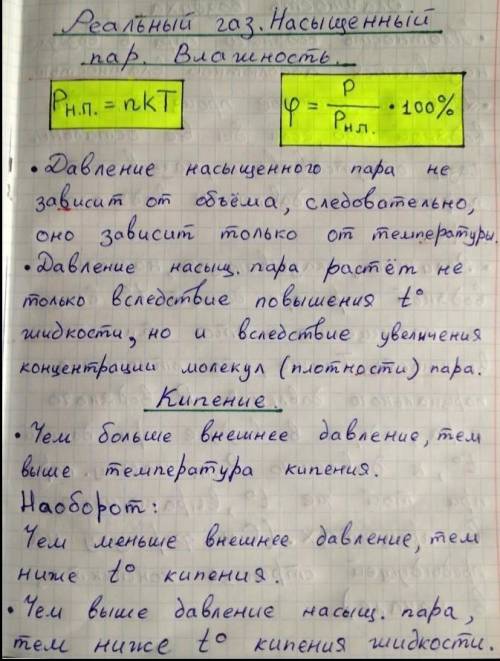 Реальный газ. Насыщенный
пар. Влажность.
Pн.п. = nkT
φ = P / Pн.п. • 100%
• Давление насыщенного пара не
зависит от объёма, следовательно,
оно зависит только от температуры.
• Давление насыщ. пара растёт не
только вследствие повышения t°
жидкости, но и вследствие увеличения
концентрации молекул (плотности) пара.
Кипение.
• Чем больше внешнее давление, тем
выше температура кипения.
Наоборот:
Чем меньше внешнее давление, тем
ниже t° кипения.
• Чем выше давление насыщ. пара,
тем ниже t° кипения жидкости.